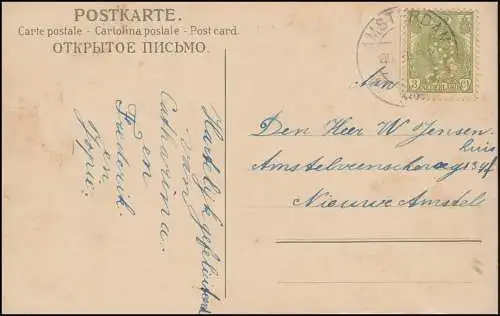 POSTKARTE.
Carte postale - Cartolina postale - Post card.
ОТКРЫТОЕ ПИСЬМО.
Hartelijk gefeliciteerd
van
Catharina.
en
Frederik.
en
AMSTERDAM
3 Ct
NEDERLAND
Aan
Den Heer W Jensen
huis
Nieuwe Amstel